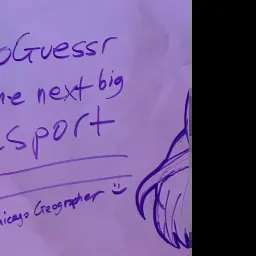 oGuessr
he next big
esport
hicago Geographer :)